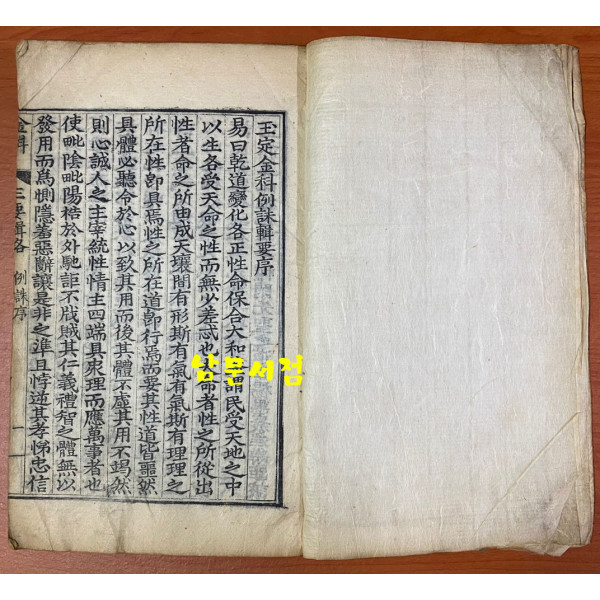 玉定金科例誅輯要序
易曰乾道變化各正性命保合大和謂民受天地之中
以生各受天命之性而無少差忒也夫命者性之所從出
性者命之所由成天壤間有形斯有氣有氣斯有理理之
所在性卽具焉性之所在道卽行焉而要其性道皆噩然
具體必聽令於心以致其用而後其體不虛其用不竭然
則心誠人之主宰統性情主四端具衆理而應萬事者也
使毗陰毗陽梏於外馳詎不戕賊其仁義禮智之體無以
發用而爲惻隱羞惡辭讓是非之準且悖逆其孝悌忠信
金科 三要輯略 例誅序 一
남문서점